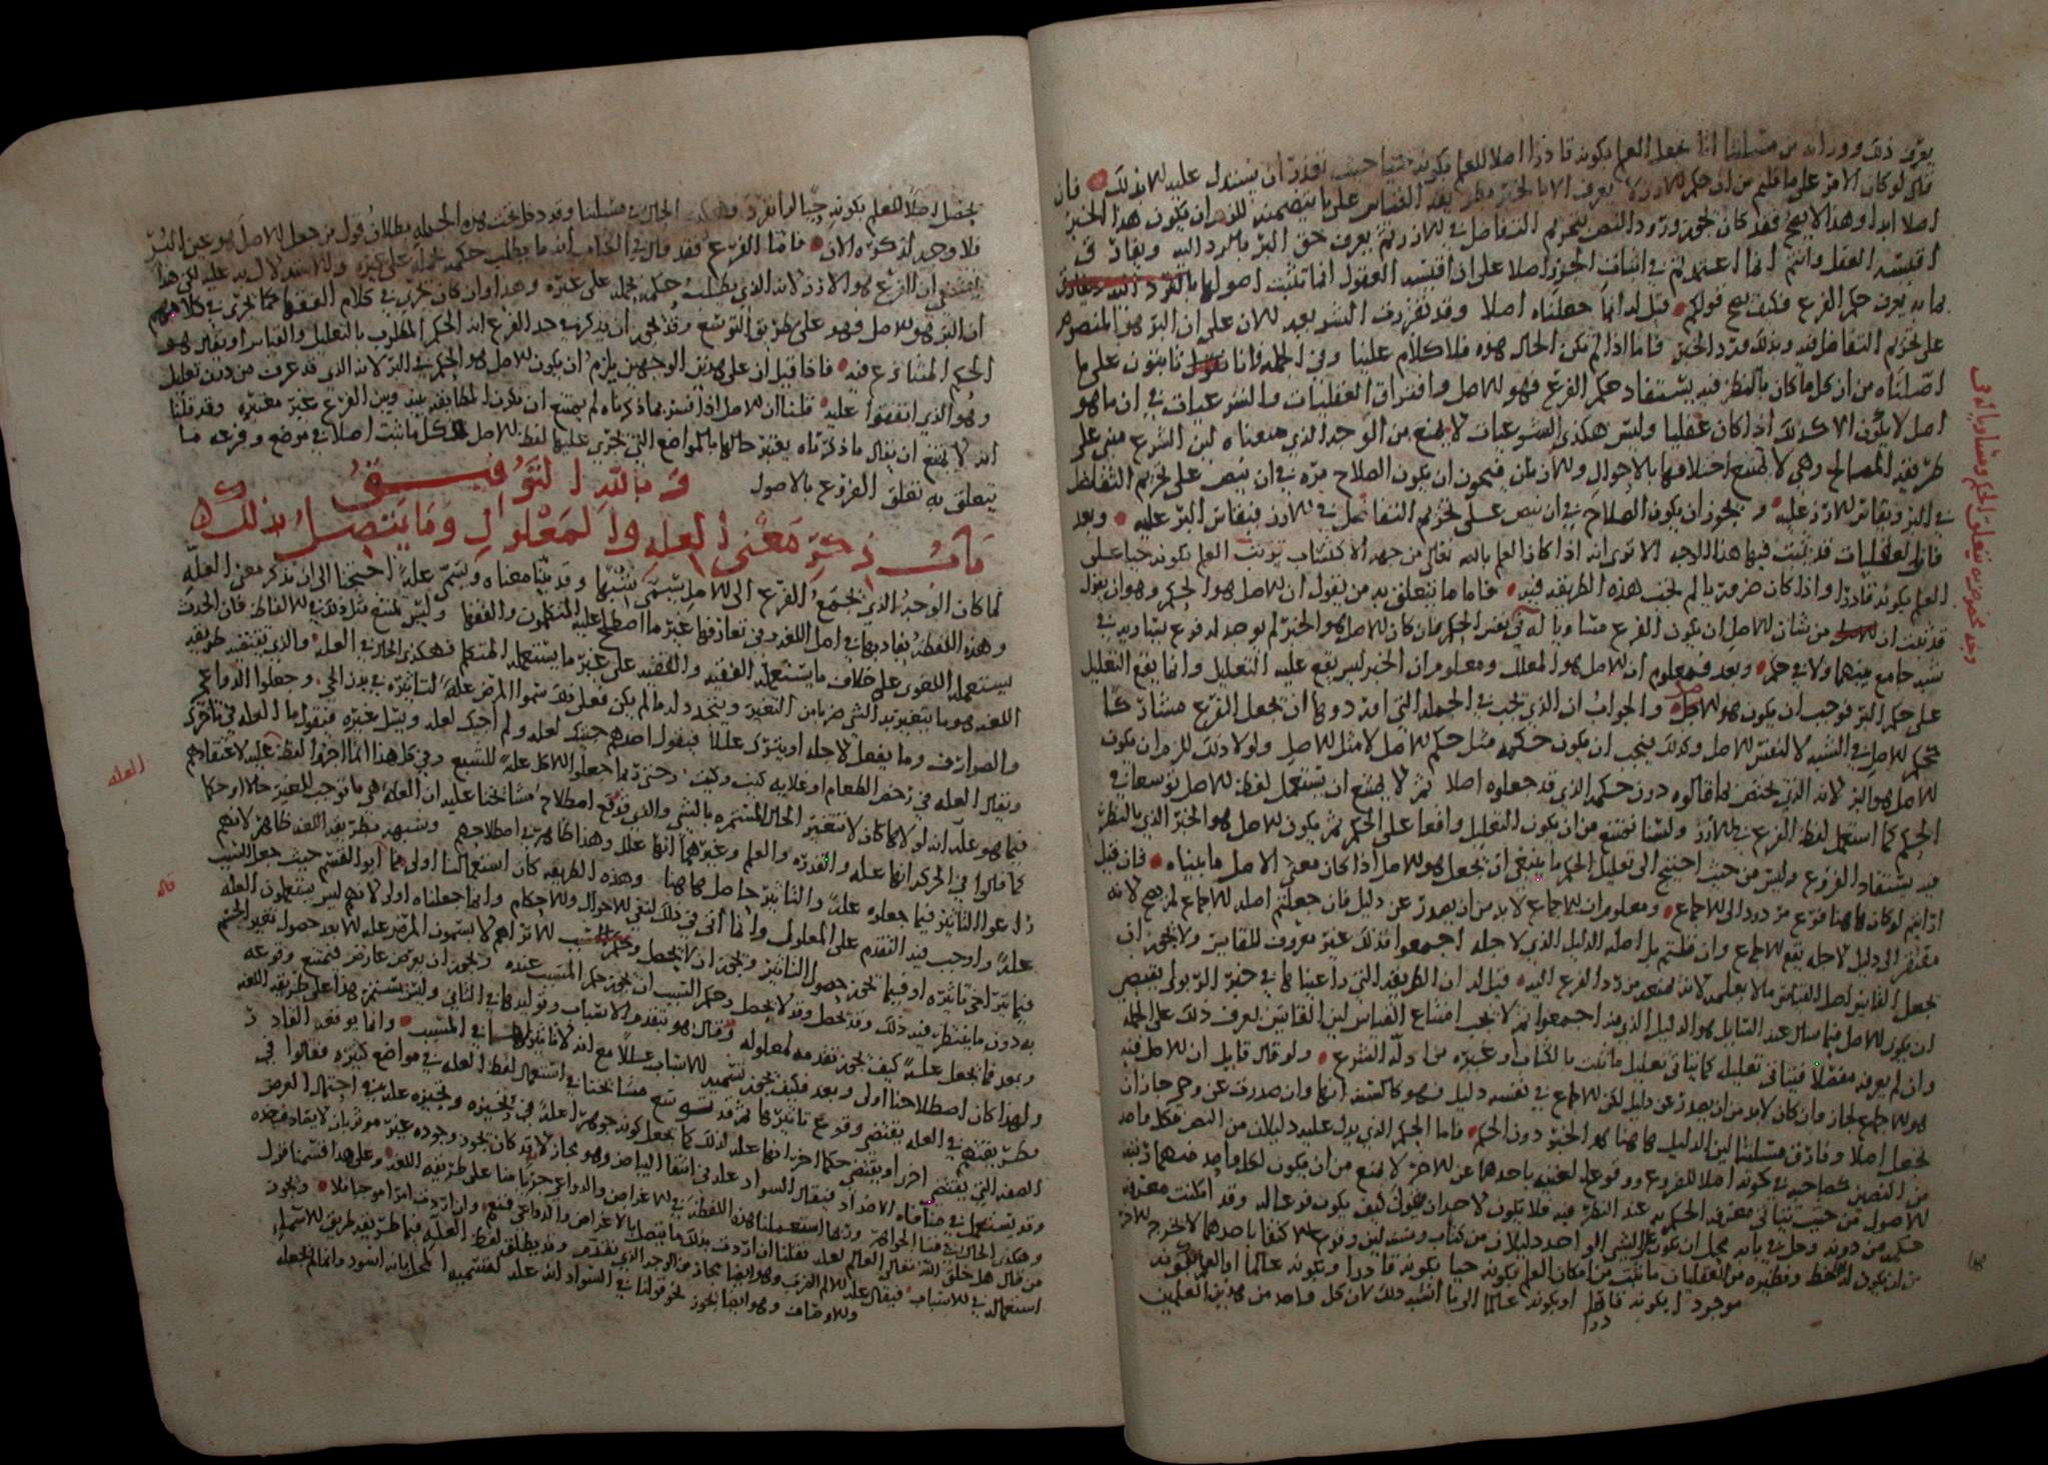 يعرف ذلك ووزانه من مسلتنا انا نجعل العلم بكونه قادرا اصلا للعلم بكونه حيا حيث تعذر ان يستدل عليه الا بذلك فان
قال لو كان الامر على ما قلتم من ان حكم الارز لا يعرف الا بالخبر
اصلا ابدا وهذا لا يصح فقد كان يجوز ورود النص بتحريم التفاضل في الارز ثم يعرف حق البر بالرد اليه ويفارق
اقيسة العقل وانتم انما اعتمدتم في اثبات الخبر اصلا على ان اقيسة العقول انما تثبت اصولها
بما به يعرف حكم الفرع فكيف يصح قولكم قيل له انما جعلناه اصلا وقد تقرر في الشرع بعد الان على ان البر هو المنصوص
على تحريم التفاضل فيه وبذلك ورد الخبر فاما اذا لم تكن الحال هذه فلا كلام علينا وفي الجملة فانا ثابتون على ما
اصلناه من ان كل ما كان بالنظر فيه يستفاد حكم الفرع فهو الاصل وافتراق العقليات والشرعيات في ان ما هو
اصل لا يكون الا كذلك اذا كان عقليا وليس هكذى الشرعيات لا يمنع من الوجه الذي منعناه لان الشرع مبني على
طريقة المصالح وهي لا يمتنع اختلافها بالاحوال والازمان فيجوز ان يكون الصلاح مرة في ان ينص على تحريم التفاضل
في البر ويقاس الارز عليه ويجوز ان يكون الصلاح في ان ينص على تحريم التفاضل في الارز فيقاس البر عليه وبعد
فان العقليات قد يثبت فيها هذا الوجه الا ترى انه اذا كان العلم بالله تعالى من جهة الاكتساب ترتب العلم بكونه حيا على
العلم بكونه قادرا واذا كان ضرورة يا لم يجب هذه الطريقة فيه فاما ما يتعلق به من يقول ان الاصل هو الحكم وهو ان يقول
قد ثبت ان من شان الاصل ان يكون الفرع مساويا له في نفس الحكم فان كان الاصل هو الخبر لم يوجد له فرع يساويه في
شبه جامع بينهما ولا في حكم وبعد فمعلوم ان الاصل هو المعلل ومعلوم ان الخبر ليس يقع عليه التعليل وانما يقع التعليل
على حكم البر فوجب ان يكون هو الاصل والجواب ان الذي يجب في الجملة التي اوردوها ان نجعل الفرع مشاركا
لحكم الاصل في الشبه لا لنفس الاصل وكذلك يجب ان يكون حكمه مثل حكم الاصل لا مثل الاصل ولولا ذلك للزم ان يكون
الاصل هو البر لانه الذي يختص بما قالوه دون حكمه الذي قد جعلوه اصلا ثم لا يمتنع ان يستعمل لفظ الاصل توسعا في
الحكم كما استعمل لفظ الفرع في الارز ولسنا نمتنع من ان يكون التعليل واقعا على الحكم ثم يكون الاصل هو الخبر الذي بالنظر
فيه يستفاد الفروع وليس من حيث احتيج الى تعليل الحكم ما ينبغي ان يجعل هو الاصل اذا كان معنى الاصل ما بيناه فان قيل
ارايتم لو كان هاهنا فرع مردود الى الاجماع ومعلوم ان الاجماع لا بد من ان يصدر عن دليل فان جعلتم اصله الاجماع لم يصح لانه
مفتقر الى دليل لاجله يقع الاجماع وان قلتم بل اصله الدليل الذي لاجله اجمعوا فذلك غير معروف للقايس ولا يجوز ان
يجعل القايس اصل القياس ما لا يعلمه لانه ممتنع من رد الفرع اليه قيل له ان الطريقة التي راعيناها في خبر الربوا يقتضي
ان يكون الاصل فيما سال عنه السايل هو الدليل الذي منه اجمعوا ثم لا يجب امتناع القياس لان القايس يعرف ذلك على الجملة
وان لم يعرفه مفصلا فيتاتى تعليله كما يتاتى تعليل ما ثبت بالكتاب وغيره من ادلة الشرع ولو قال قايل ان الاصل فيه
هو الاجماع لجاز وان كان لا بد من ان يصدر عن دليل لكن الاجماع في نفسه دليل فهو كالسنة انها وان صدرت عن وحي جاز ان
تجعل اصلا وفارق مسلتنا لان الدليل هاهنا هو الخبر دون الحكم فاما الحكم الذي يدل عليه دليلان من النص فكل واحد
من النصين كصاحبه في كونه اصلا للفروع ووقوع الغنية باحدهما عن الاخر لا يمنع من ان يكون لكل واحد منهما رتبة
الاصول من حيث يتاتى معرفة الحكم به عند النظر فيه فلا يكون لاحد ان يقول كيف يكون فرعا له وقد امكنت معرفة
حكمه من دونه وحل في بابه محل ان يكون على الشي الواحد دليلان من كتاب وسنة لان وقوع الاكتفا باحدهما لا يخرج الاخر
من ان يكون له الحظ ونظيره من العقليات ما ثبت من امكان العلم بكونه حيا بكونه قادرا وبكونه عالما او العلم بكونه
موجودا بكونه قادرا او بكونه عالما الى ما اشبه ذلك لان كل واحد من هذين العلمين
وجه غموض به يتعلق الحكم ومساويا له في
يحصل اصلا للعلم بكونه حيا لو انفرد وهكذى الحال في مسلتنا وقد دخل تحت هذه الجملة بطلان قول من جعل الاصل هو عين البر
فلا وجه لذكره الان فاما الفرع فقد قال في الكتاب انه ما يطلب حكمه بحمله على غيره والاستدلال به عليه لكن هذا
يقتضي ان الفرع هو الارز لانه الذي يطلب حكمه بحمله على غيره وهذا وان كان يجري في كلام الفقهاء كما يجري في كلامهم
ان البر هو الاصل فهو على طريق التوسع وقد يجب ان يذكر في حد الفرع انه الحكم المطلوب بالتعليل والقياس او يقال هو
الحكم المتنازع فيه فاذا قيل ان على هذين الوجهين يلزم ان يكون الاصل هو الحكم في البر لانه الذي قد عرف من دون تعليل
وهو الذي اتفقوا عليه قلنا ان الاصل اذا فسر بما ذكرناه لم يمتنع ان تكون المطابقة بينه وبين الفرع غير معتبره وقد قلنا
انه لا يمتنع ان يقال ما ذكرناه يعتبر حالها بالمواضع التي يجري عليها لفظ الاصل فكل ما ثبت اصلا في موضع وفرعه ما
يتعلق به تعلق الفروع بالاصول وبالله التوفيق
باب ذكر معنى العله والمعلول وما يتصل بذلك
لما كان الوجه الذي يجمع الفرع الى الاصل يسمى شبها وقد بينا معناه ويسمى علة احتجنا الى ان نذكر معنى العلة
وهذه اللفظة يفاد بها في اصل اللغة وفي تعارفها غير ما اصطلح عليه المتكلمون والفقها وليس يمتنع مثل ذلك في الالفاظ فان الحدث
يستعمله اللغوي على خلاف ما يستعمله الفقيه والفقيه على غير ما يستعمله المتكلم فهكذى الحال في العلة والذي يقتضيه طريقة
اللغة هو ما يتغير به الشي ضربا من التغير ويتجدد له ما لم يكن فعلى ذلك سموا المرض علة لتاثيره في بدن الحي وجعلوا الدواعي
والصوارف وما يفعل لاجله او يترك عللا فيقول احدهم جيتك لعله ولم اجيك لعله ويسل غيره فيقول ما العله في تاخرك
ويقال العلة في رخص الطعام او غلايه كيت وكيت وربما جعلوا الاكل علة للشبع وفي كل هذا انما اجروا لفظ العلة لاعتقادهم
فيما هو علة انه لولاها كان لا تتغير الحال المستمره بالشي والذي وقع اصطلاح مشايخنا عليه ان العلة هي ما توجب للغير حالا او حكما
كما قالوا في الحركه انها علة والقدره والعلم وغيرهما انها علل وهذا ظاهر في اصطلاحهم وشبهه بطريقة اللغة ظاهر لانهم
راعوا التاثير فيما جعلوه علة والتاثير حاصل هاهنا وهذه الطريقه كان استعمالنا اولى مما ابو القسم حيث جعل السبب
علة واوجب فيه التقدم على المعلول وانما اتى في ذلك لنفي الاحوال والاحكام وانما جعلناه اولى لانهم ليس يستعملون العلة
فيما تراخى تاثيره او فيما يجوز حصول التاثير ويجوز ان لا يحصل الا تراهم لا يسمون المرض علة الا بعد حصول تغير الجسم
به دون ما ينتظر فيه ذلك وقد يحصل وقد لا يحصل وحكم السبب ان يجوز حكم المسبب عنده ويجوز ان يعرض عارض فيمتنع وقوعه
وبعد فما يجعل علة كيف يجوز تقدمه لمعلوله وقال هو بتقدم الاسباب وتوليدها في الثاني وليس يستمر هذا على طريقة اللغة
ولهذا كان اصطلاحنا اولى وبعد فكيف يجوز تسميه الاسباب عللا مع انه لا تاثير لها في المسبب وانما يوقعه القادر
بطريقتهم في العله يقتضي وقوع تاثيرها ثم قد توسع مشايخنا في استعمال لفظ العله في مواضع كثيره فقالوا في
الصفه التي يقتضي اخرى او يقتضي حكما اخر انها علة لذلك كما يجعل كونه جوهرا علة في تحيزه وتحيزه علة في احتمال العرض
وقد يستعمل في منافاه الاضداد فيقال السواد علة في انتفا البياض وهو مجاز لانه قد كان يجوز وجوده غير موثر بان لا يصادف ضده
وهكذى الحال في فنا الجواهر وربما استعملنا هذه اللفظة في الاغراض والدواعي جريا منا على طريقه اللغه وعلى هذا قسمنا قول
من قال هل خلق الله تعالى العالم لعلة فقلنا ان اردت بذلك ما يتصل بالاغراض والدواعي فنعم وان اردت امرا موجبا فلا ويجوز
استعماله في الاسباب فيقال علة الالم الضرب وهو ايضا مجاز من الوجه الذي تقدم وقد يطلق لفظ العلة فيما طريقه طريق الاسماء
والاوصاف وهو ايضا يجوز نحو قولنا في السواد انه علة لتسميه المحل بانه اسود وانما لم نجعله
العله